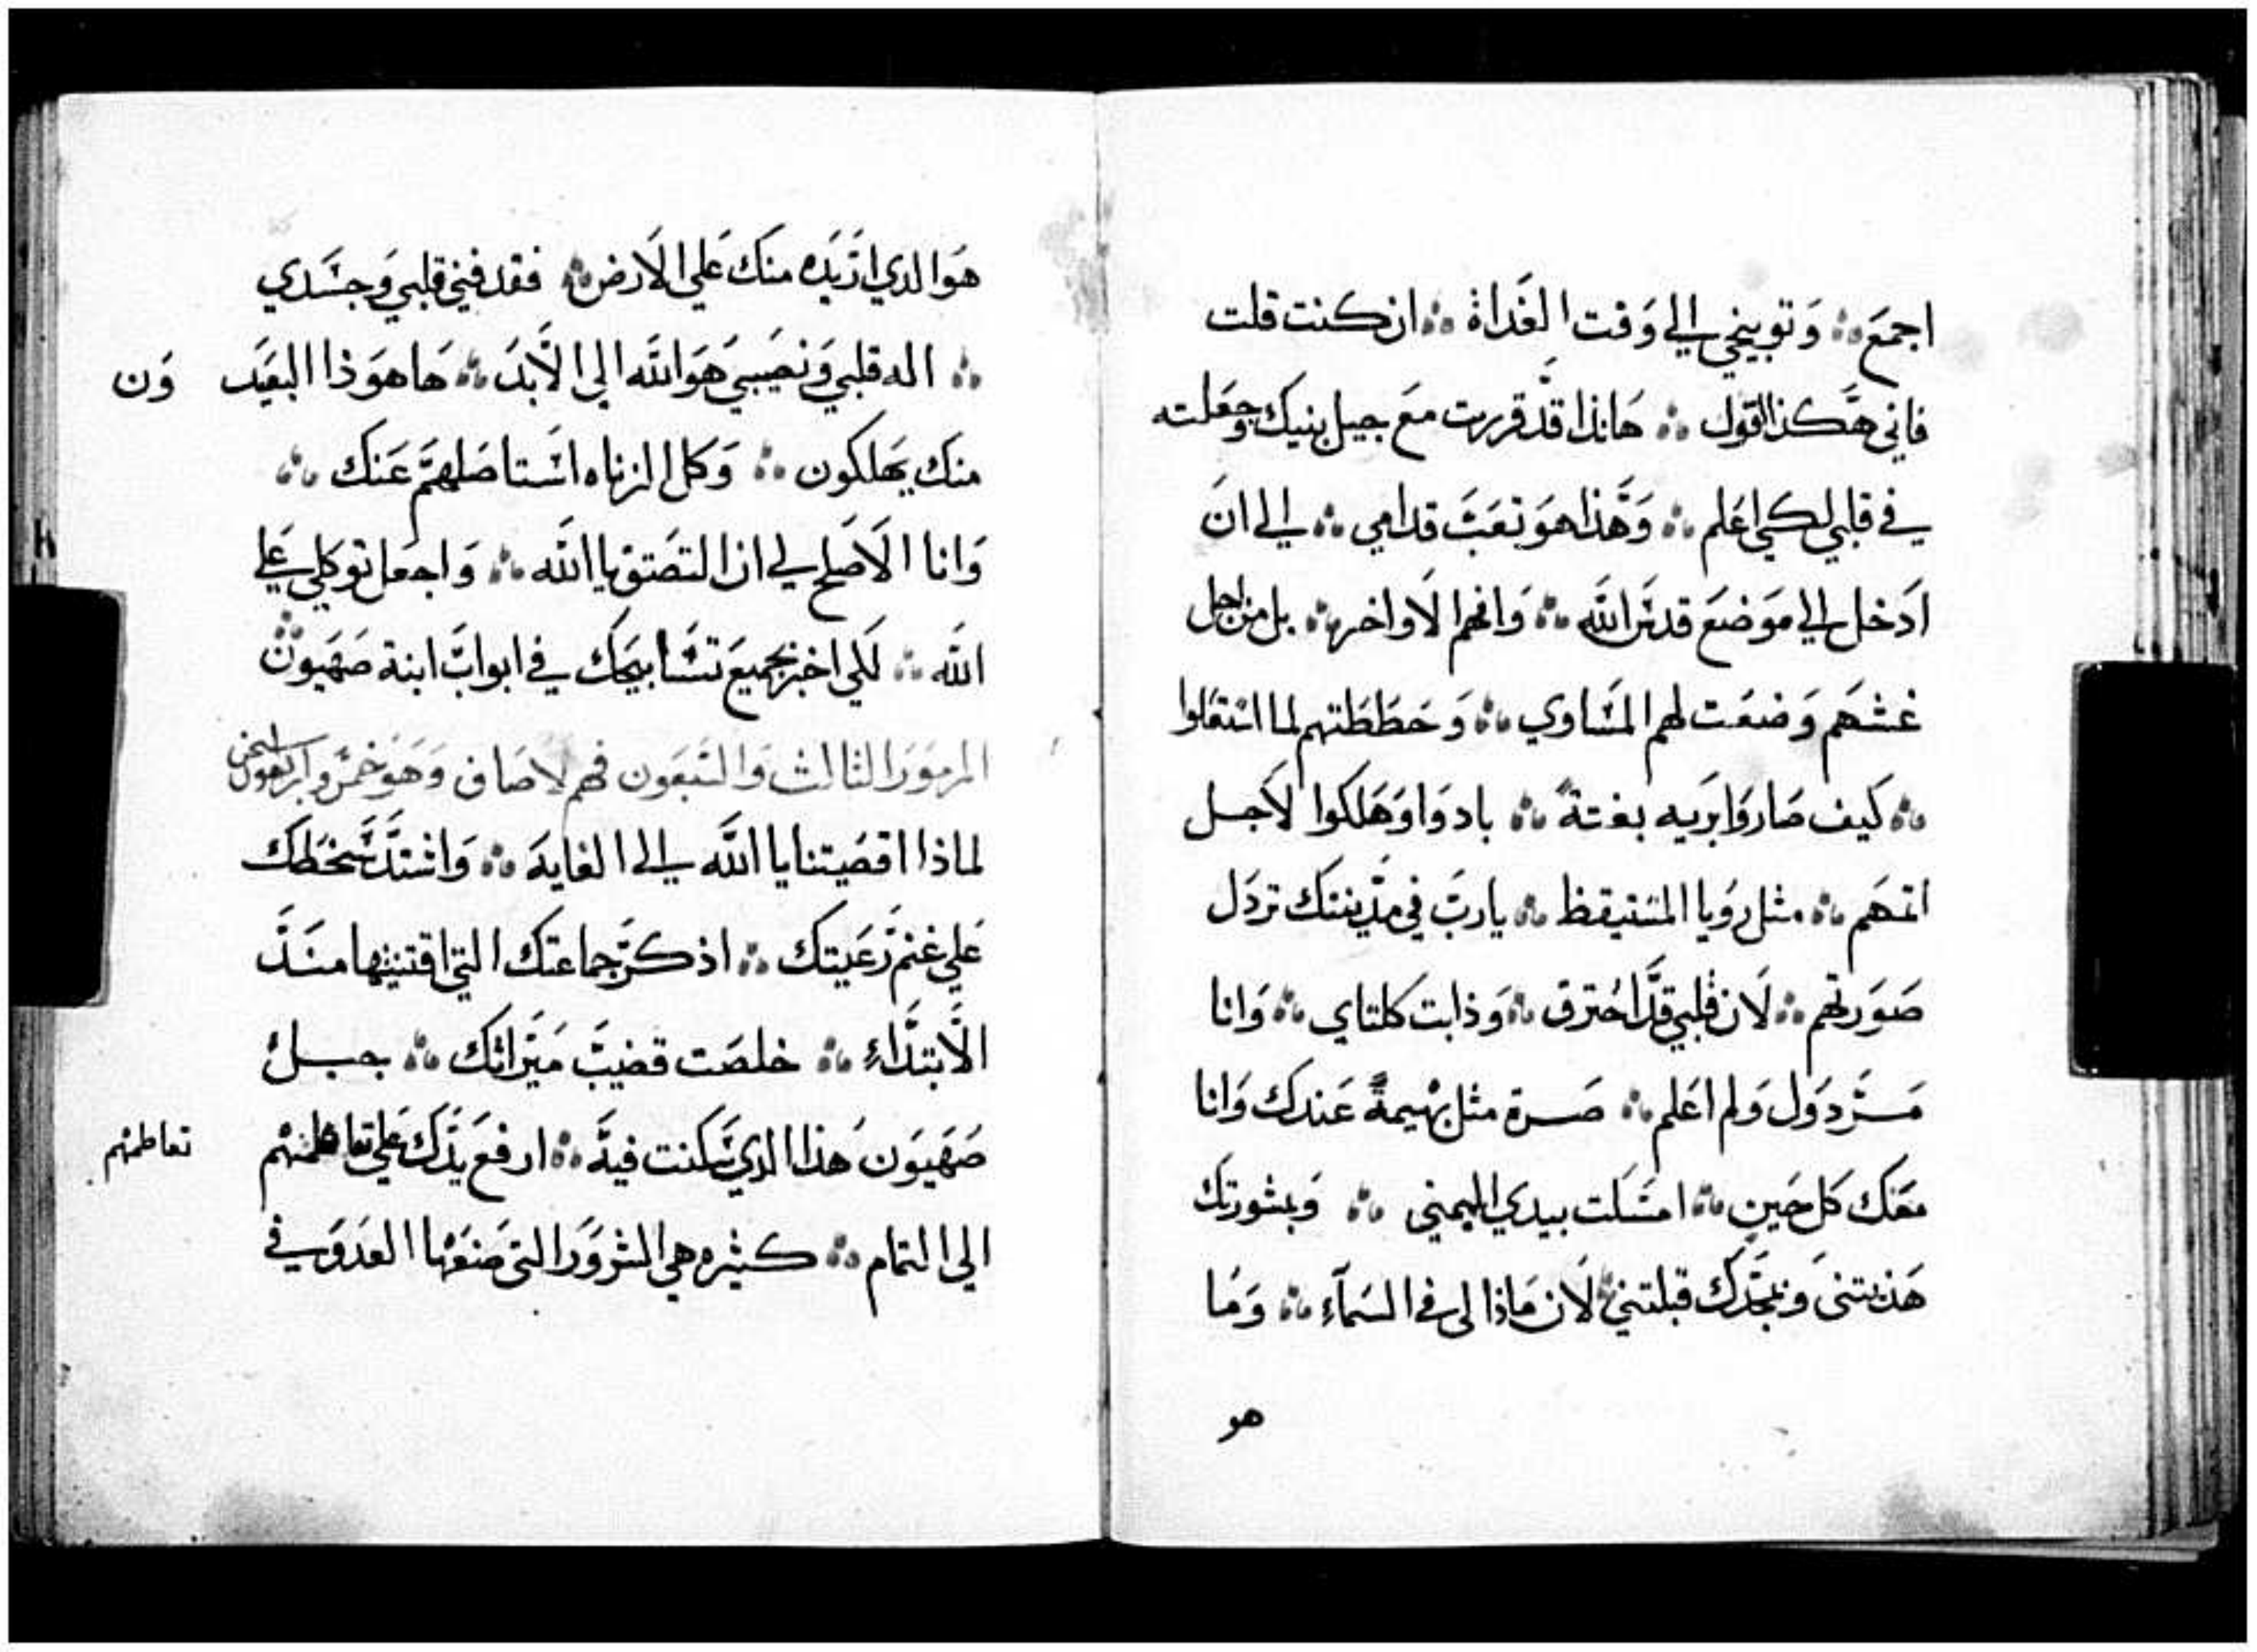 اجمع ܀ وتوبيخي الي وقت الغداة ܀ ان كنت قلت
فاني هكذا اقول ܀ هانذا قد قررت مع جيل بنيك وجعلته
في قلبي لكي اعلم ܀ وهذا هو تعب قدامي ܀ الي ان
ادخل الي موضع قدس الله ܀ وافهم الاواخر ܀ بل من اجل
غشهم وضعت لهم المساوي ܀ وحططتهم لما استقلوا
܀ كيف صاروا بريه بغتة ܀ بادوا وهلكوا لاجل
اثمهم ܀ مثل رويا المستيقظ ܀ يارب في مدينتك تردل
صورتهم ܀ لان قلبي قد احترق ܀ وذابت كلتاي ܀ وانا
مردول ولم اعلم ܀ صرة مثل بهيمة عندك وانا
معك كل حين ܀ امسكت بيدي اليمني ܀ وبمشورتك
هذبتني وبمجدك قبلتني ܀ لان ماذا لي في السماء ܀ وما
هو
هو الدي اريده منك علي الارض ܀ فقد فني قلبي وجسدي
܀ اله قلبي ونصيبي هو الله الي الابد ܀ ها هوذا البعيد ون
منك يهلكون ܀ وكل الزناه استاصلهم عنك ܀
وانا الاصلح لي ان التصق يا الله ܀ واجعل توكلي علي
الله ܀ لكي اخبر بجميع تسابيحك في ابواب ابنة صهيون ܀
المزمور الثالث والسبعون فهم لاصاف وهو خمس واربعون استخن
لماذا اقصيتنا يا الله الي الغايه ܀ واشتد سخطك
علي غنم رعيتك ܀ اذكر جماعتك التي اقتنيتها منذ
الابتداء ܀ خلصت قضيب ميراثك ܀ جبل
صهيون هذا الدي سكنت فيه ܀ ارفع يدك علي تعاظمهم تعاظمهم
الي التمام ܀ كثيره هي الشرور التي صنعها العدو في